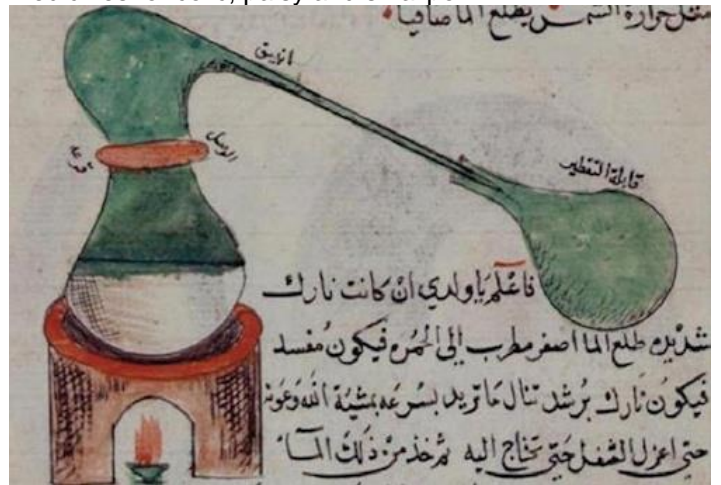 مثل حرارة الشمس يطلع الما صافيا
انبيق
الوصل
قرعه
قابلة التقطير
فاعْلم يا ولدي ان كانت نارك
شديده طلع الما اصفر مطرب الى الحمره فيكون مُفسد
فيكون نارك برُشد تنال ما تريد بسرعه بمشية الله وعونه
حتى اعزل الثفل حتى تحتاج اليه ثم خذ من ذلك المآء